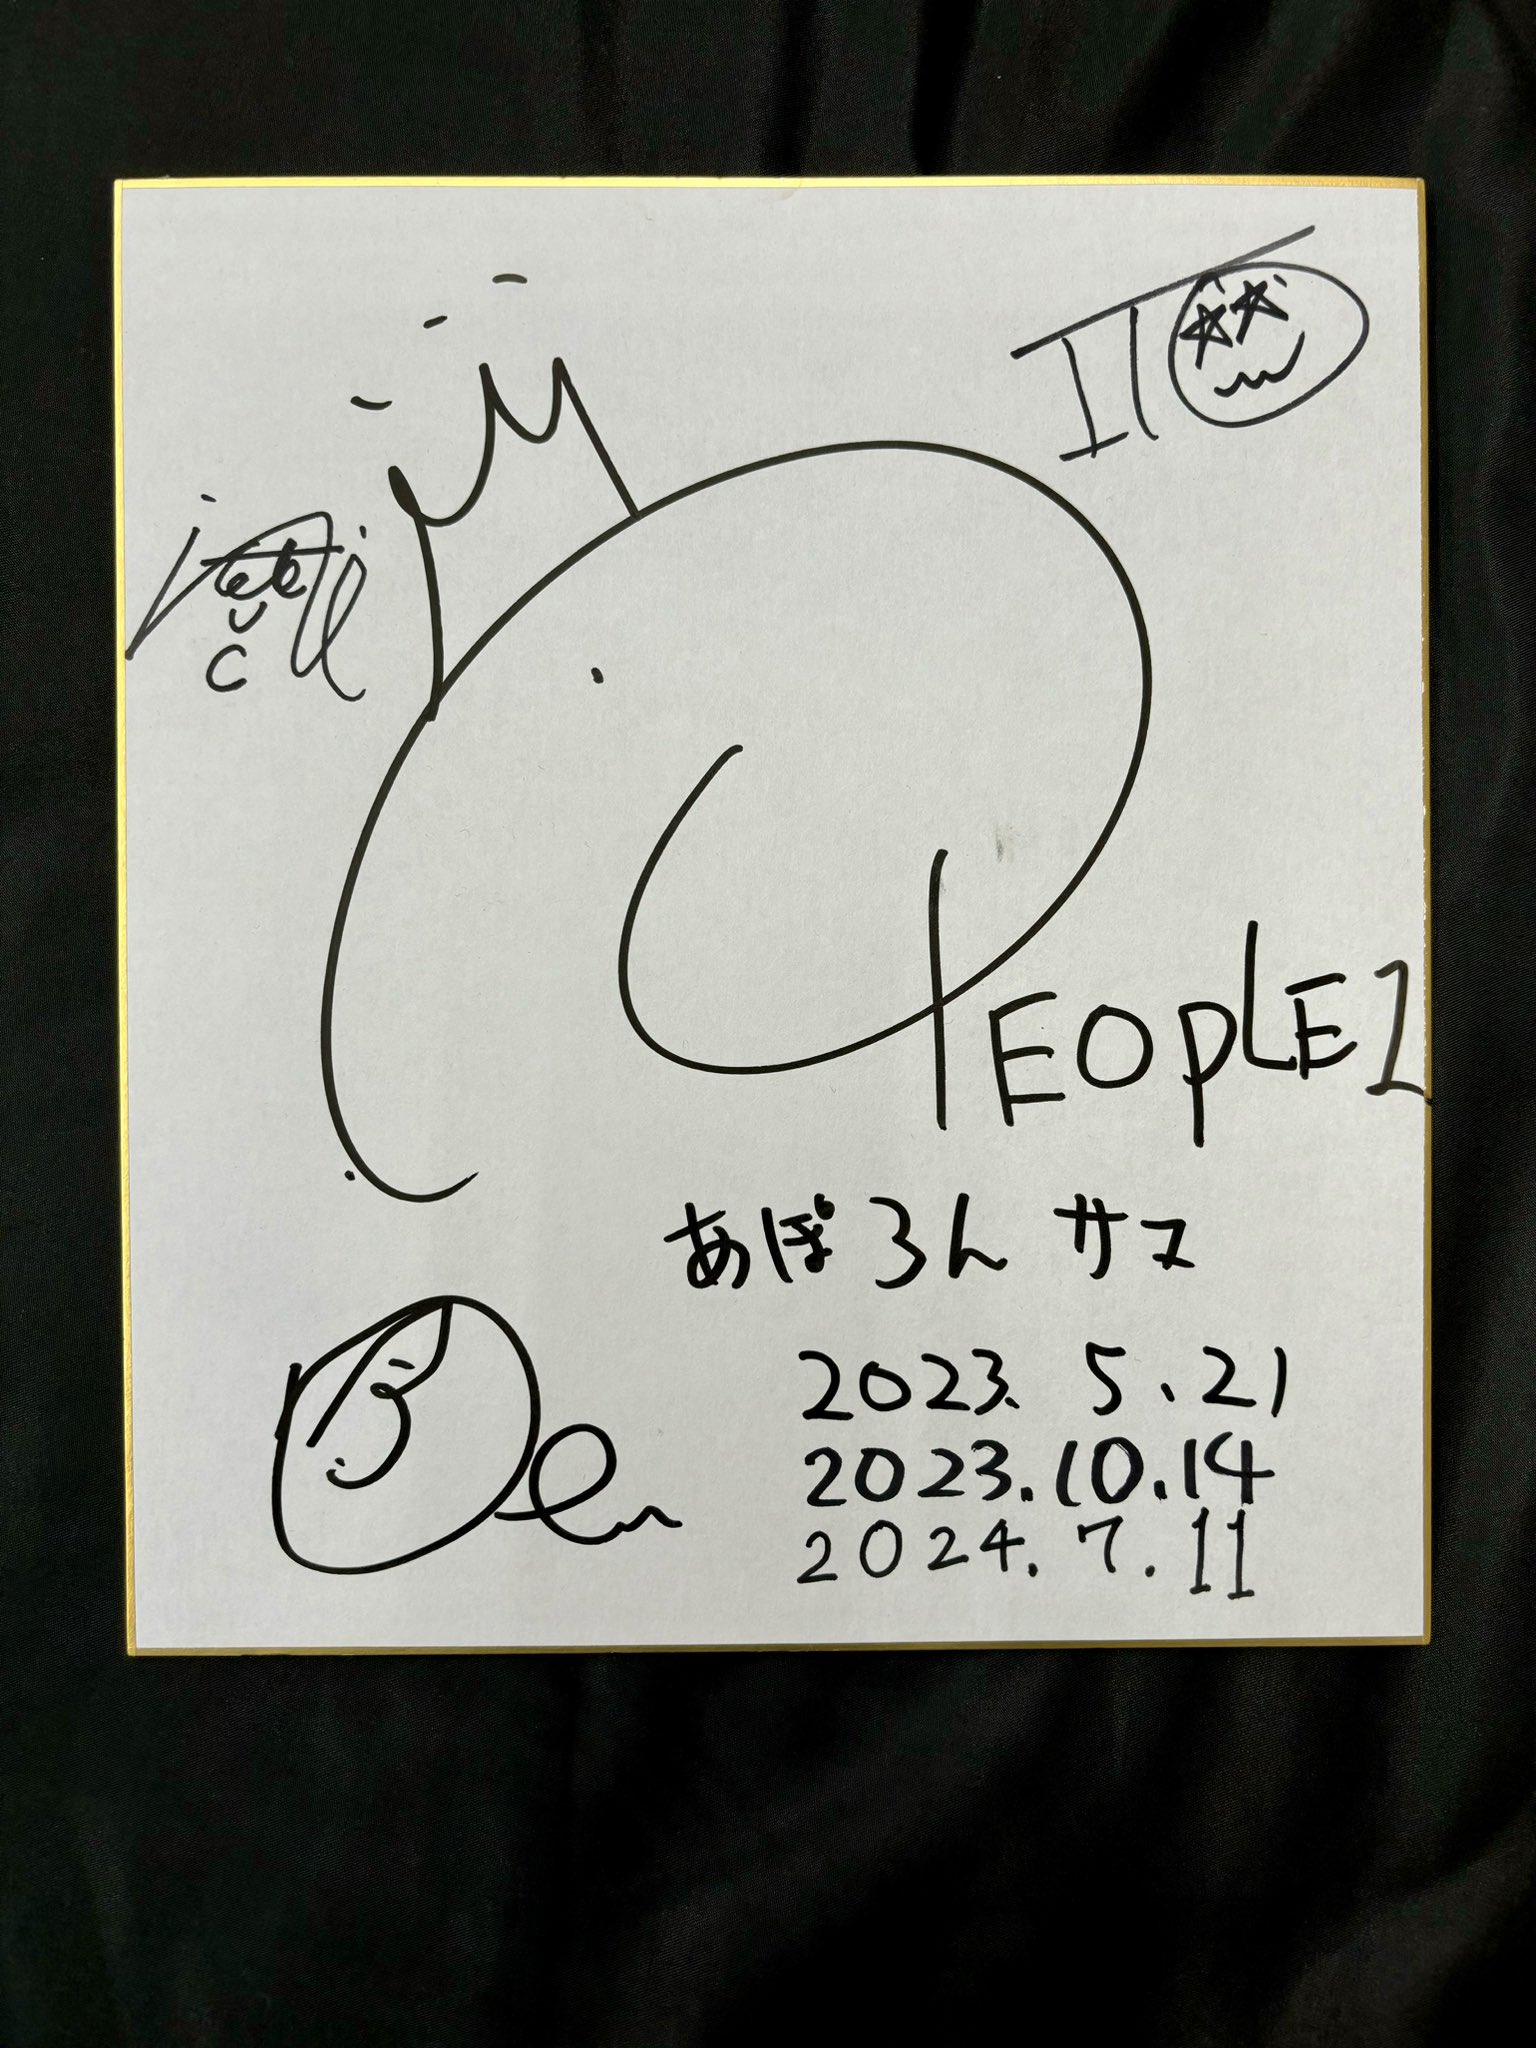 ITO
PEOPLE1
あぽろんサマ
2023.5.21
2023.10.14
2024.7.11
Deu